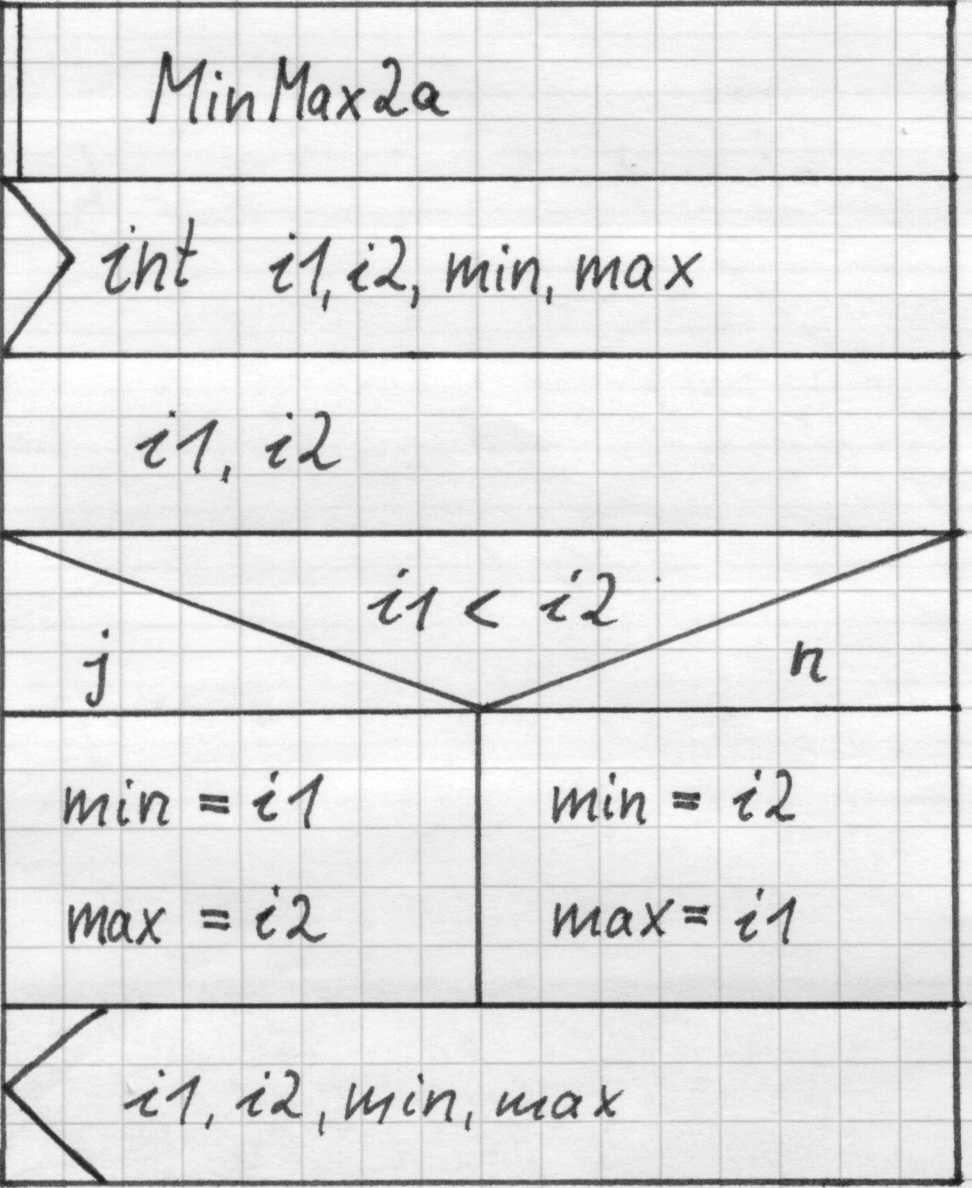 MinMax2a
int i1, i2, min, max
i1, i2
i1 < i2
j
n
min = i1
max = i2
min = i2
max = i1
i1, i2, min, max